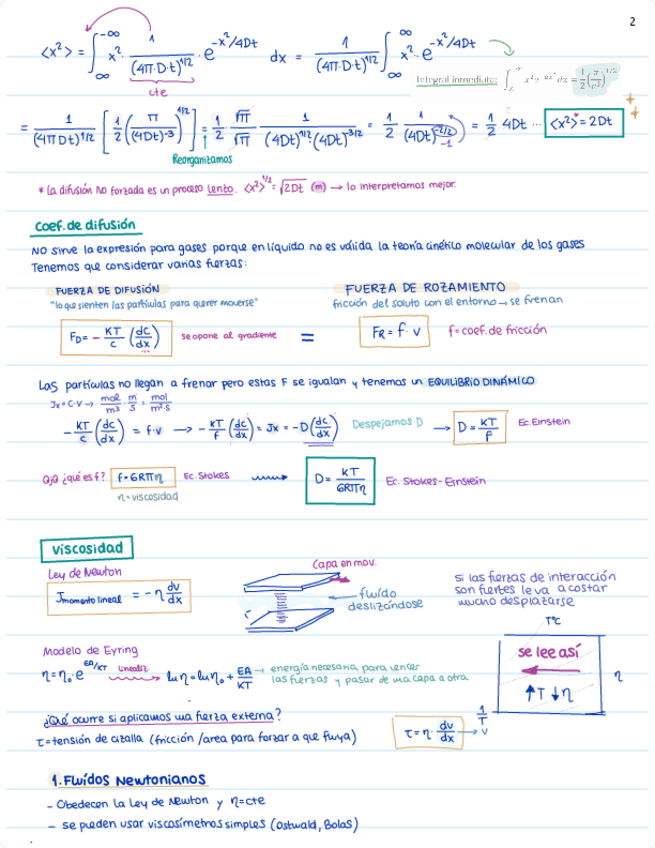 2
⟨x²⟩ = ∫_∞^-∞ x² · 1/(4π·D·t)^1/2 · e^-x²/4Dt dx = 1/(4π·D·t)^1/2 ∫_∞^∞ x² · e^-x²/4Dt
cte
Integral inmediata:
= 1/(4πDt)^1/2 [1/2 (π/(4Dt)^-3)^1/2] = 1/2 √π/√π 1/(4Dt)^1/2·(4Dt)^-3/2 = 1/2 1/(4Dt)^-2/2 = 1/2 4Dt ... ⟨x²⟩ = 2Dt
-1
Reorganizamos
* La difusión no forzada es un proceso lento. ⟨x²⟩^1/2 = √2Dt (m) → lo interpretamos mejor.
Coef. de difusión
NO sirve la expresión para gases porque en líquido no es válida la teoría cinético molecular de los gases
Tenemos que considerar varias fuerzas:
FUERZA DE DIFUSIÓN
FUERZA DE ROZAMIENTO
"lo que sienten las partículas para querer moverse"
fricción del soluto con el entorno → se frenan
F_D = - KT/C (dC/dx) se opone al gradiente = F_R = f · v f = coef. de fricción
Las partículas no llegan a frenar pero estas F se igualan y tenemos un EQUILIBRIO DINÁMICO
Jx = C·V → mol/m³ · m/s = mol/m²·s
- KT/C (dc/dx) = f·v → - KT/f (dc/dx) = Jx = -D (dc/dx) Despejamos D → D = KT/f Ec. Einstein
Ojo ¿qué es f? f = 6Rπη Ec. Stokes → D = KT/6Rπη Ec. Stokes - Einstein
η = viscosidad
viscosidad
Ley de Newton
J momento lineal = -η dv/dx
Capa en mov.
fluído
deslizándose
Si las fuerzas de interacción
son fuertes le va a costar
mucho desplazarse
T°C
se lee así
↑T ↓η
η
1/T
Modelo de Eyring
η = η₀ · e^EA/KT Linealiz → ln η = ln η₀ + EA/KT → energía necesaria para vencer
las fuerzas y pasar de una capa a otra
¿Qué ocurre si aplicamos una fuerza externa?
τ = tensión de cizalla (fricción /area para forzar a que fluya)
τ = η · dv/dx → v
1. Fluídos Newtonianos
- Obedecen la Ley de Newton y η = cte
- se pueden usar viscosímetros simples (Ostwald, Bolas)